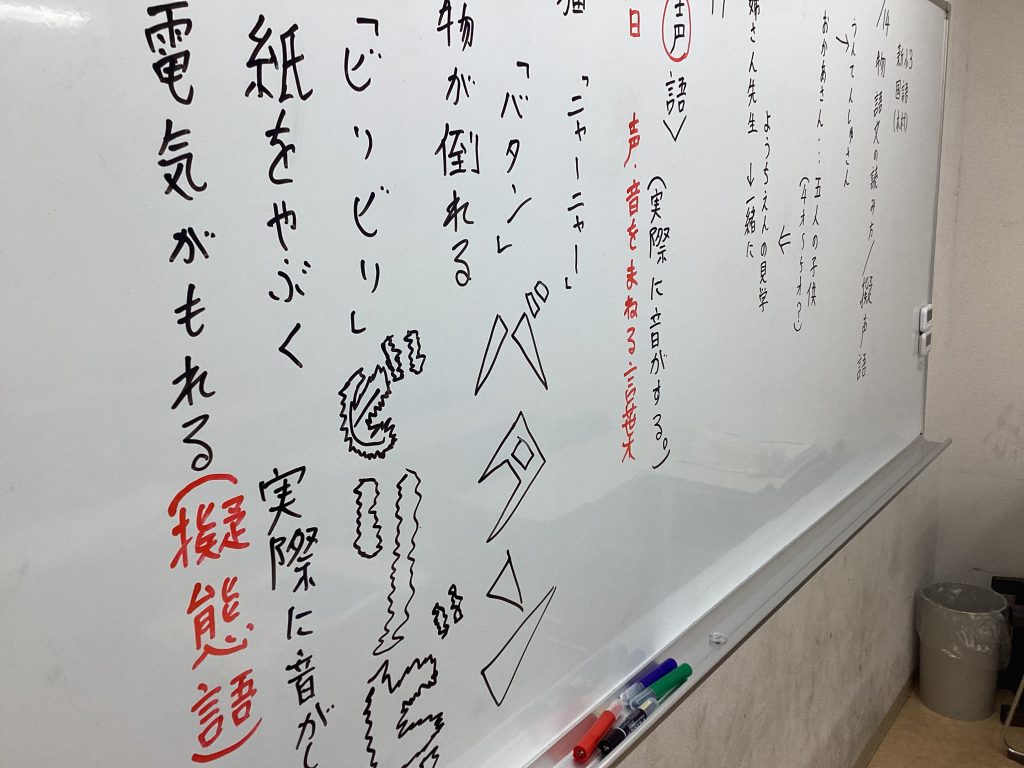 新小3
国語
(木村)
/14 物語文の読み方/擬声語
うんてんしゅさん
おかあさん…五人の子供
(4才〜5才?)
ようちえんの見学
姉さん先生 → 一緒に
声語
(実際に音がする。)
声・音をまねる言葉
「ニャーニャー」
「バタン」
バタン
物が倒れる
「ビリビリ」
ビリビ
紙をやぶく
実際に音がし
電気がもれる(擬態語)